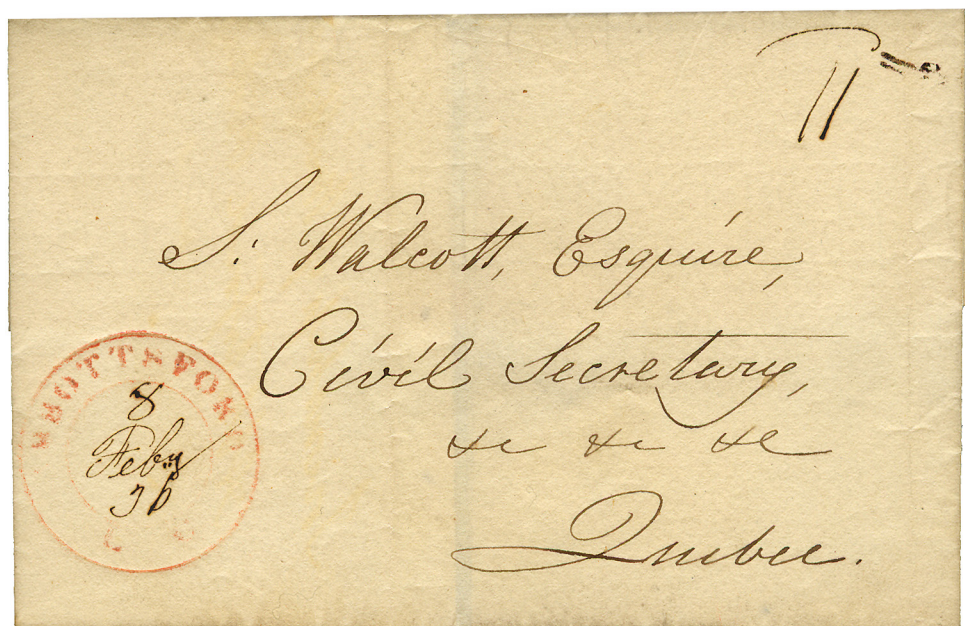 11
S: Walcott, Esquire,
Civil Secretary,
&c &c &c
Quebec.
ABBOTTSFORD
8
Feby
36
L C